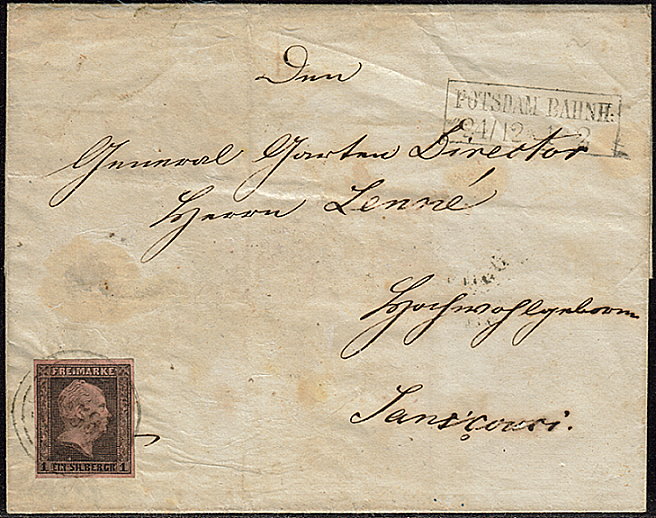 Den
POTSDAM BAHNH:
24/12 2
General Garten Director
Herrn Lenné
Hochwohlgeborn
Sansçouci.
FREIMARKE
1 EIN SILBERGR. 1